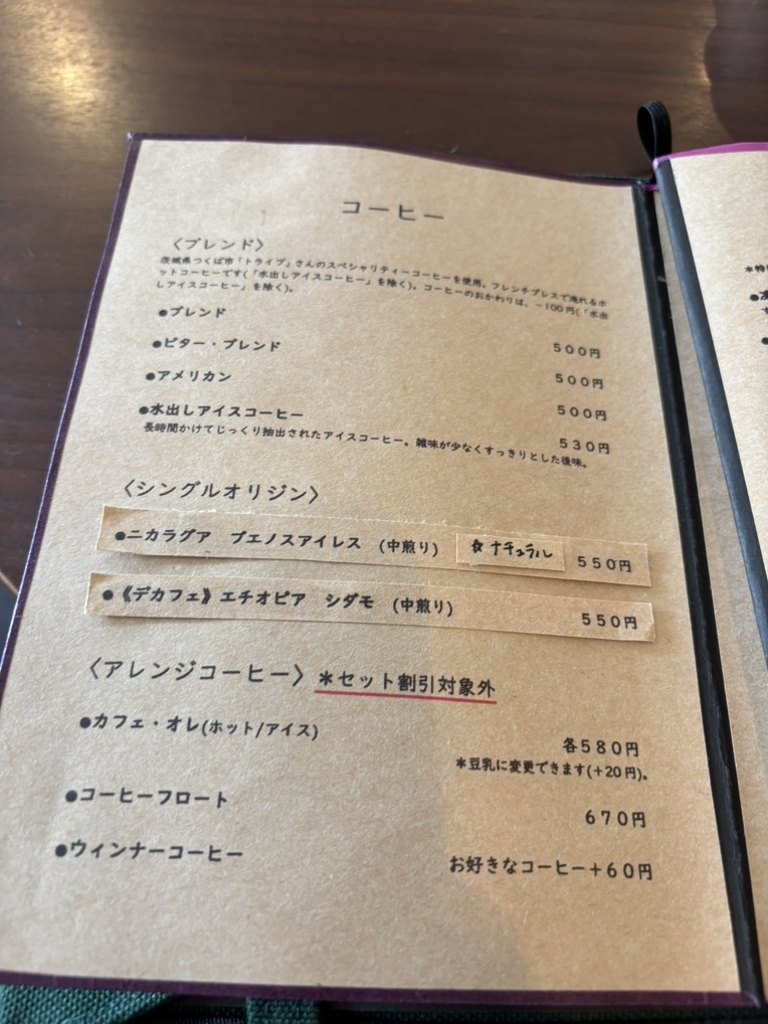 コーヒー
〈ブレンド〉
茨城県つくば市「トライブ」さんのスペシャリティーコーヒーを使用。フレンチプレスで淹れるホ
ットコーヒーです(「水出しアイスコーヒー」を除く)。コーヒーのおかわりは、−100円(「水出
しアイスコーヒー」を除く)。
●ブレンド 500円
●ビター・ブレンド 500円
●アメリカン 500円
●水出しアイスコーヒー 530円
長時間かけてじっくり抽出されたアイスコーヒー。雑味が少なくすっきりとした後味。
〈シングルオリジン〉
●ニカラグア ブエノスアイレス (中煎り) ☆ナチュラル 550円
●《デカフェ》エチオピア シダモ (中煎り) 550円
〈アレンジコーヒー〉＊セット割引対象外
●カフェ・オレ(ホット/アイス) 各580円
＊豆乳に変更できます(+20円)。
●コーヒーフロート 670円
●ウィンナーコーヒー お好きなコーヒー+60円
＊特